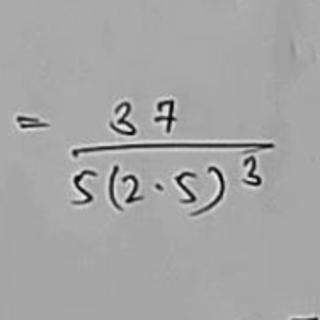 = 37
5(2·5)³